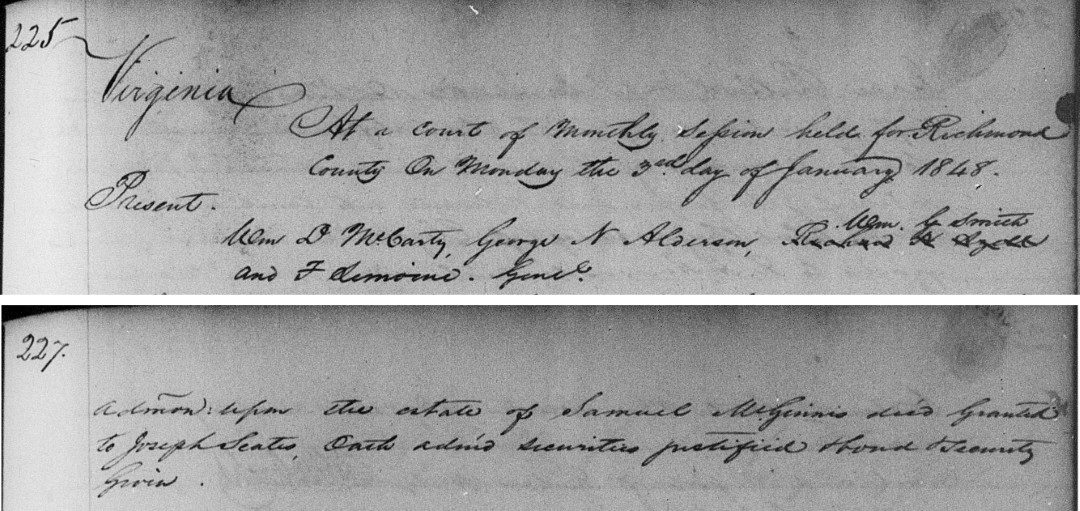 225
Virginia
At a Court of Monthly Session held for Richmond
County On Monday the 3rd day of January 1848.
Present.
Wm. G Smith
Wm D McCarty, George N Alderson, Richard H Lyell
and F Lemoine. Gent.
227.
admon: upon the estate of Samuel McGinnis decd Granted
to Joseph Scates, Oath adm'd securities justified & bond & security
Given.